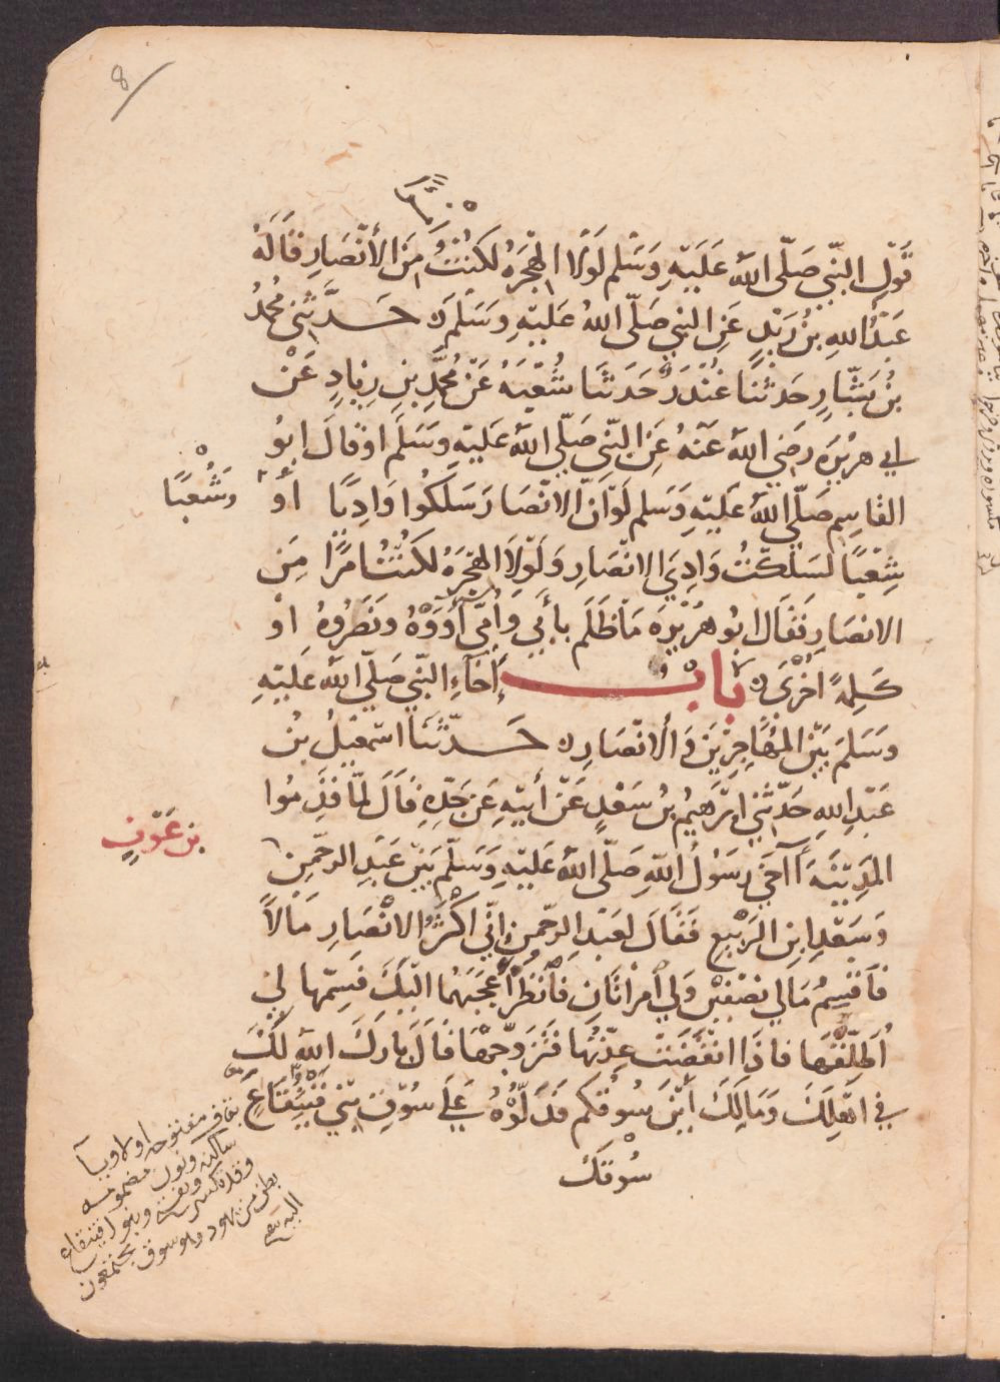 8
قَوْلِ النَّبِيِّ صَلَّى اللهُ عَلَيْهِ وَسَلَّم لَوْلَا الْهِجْرَةُ لَكُنْتُ مِنَ الأَنْصَارِ قَالَهُ
عَبْدُ اللهِ بْنُ زَيْدٍ عَنِ النَّبِيِّ صَلَّى اللهُ عَلَيْهِ وَسَلَّمَ ه حَدَّثَنِي مُحَمَّدُ
بْنُ بَشَّارٍ حَدَثَنَا غُنْدَرٌ حَدَثَنَا شُعْبَةُ عَنْ مُحَمَّدِ بْنِ زِيَادٍ عَنْ
أبي هريْرَه رضِيَ اللهُ عَنْهُ عَنِ النَّبِيِّ صَلَّى اللهُ عَلَيْهِ وَسَلَّمَ اوْ قَالَ ابُو
القَاسِمِ صَلَّى اللهُ عَلَيْهِ وَسَلم لَوْ انَّ الانْصَارَ سَلَكُوا وَادِيًا أَوْ
وَشِعْبًا
شِعْبًا لَسَلَكْتُ وَادِيَ الانْصَارِ وَلَوْلَا الهِجْرَةُ لَكُنْتُ امْرًا مِنَ
الانصَارِ فَقَالَ ابُو هُرَيْرَةَ مَا ظَلَمَ بأَبِي وَأُمِّي آوَوْهُ ونَصَرُوهُ اوْ
كَلِمَةً اخْرَى ه بَابُ إِخَاءِ النَّبِيِّ صَلَّى اللهُ عَلَيْهِ
وَسَلمَ بَيْنَ المُهَاجِرِينَ وَالانْصَارِ ه حَدّثَنَا اسْمعِيلُ بْنُ
عَبْدِ اللهِ حَدّثَنِي ابْرَهِيمُ بْنُ سَعْدٍ عَنْ أَبيْهِ عَن جَدِّهِ قَالَ لمَّا قَدِمُوا
المَدِيْنَةَ آخَى رسَوُلُ اللهِ صَلَّى اللهُ عَلَيْهِ وَسَلَّم بَيْنَ عَبْدِ الرحْمنِ
بن عَوْفٍ
وَسَعْدِ ابنِ الرَبيْعِ فَقَالَ لعَبْدِ الرّحْمنِ اِنِّي اكْثَرُ الانْصَارِ مَالاً
فَأَقْسِمُ مَالي نصْفَيْنِ وَلِي امْرأتَانِ فَانْظُرْ أَعْجَبَهُمَا الَيْكَ فَسَمِّهَا لِي
أُطَلِّقْهَا فاذَا انْقَضَتْ عِدّتُهَا فَتَزَوّجْهَا قَالَ بَارَكَ اللهُ لَكَ
في اهْلِكَ وَمَالِكَ أَيْنَ سُوْقُكُم فَدَلُّوْهُ عَلَى سُوْقِ بَنِي قَيْنُقَاعٍ
سُوْقكَ
بقاف مفتوحه اولا وبيا
ساكنه ونون مضمومه
وقد تكسر وتفتح وبنو قينقاع
بطن من يهود وهو سوق يجتمعون
اليه